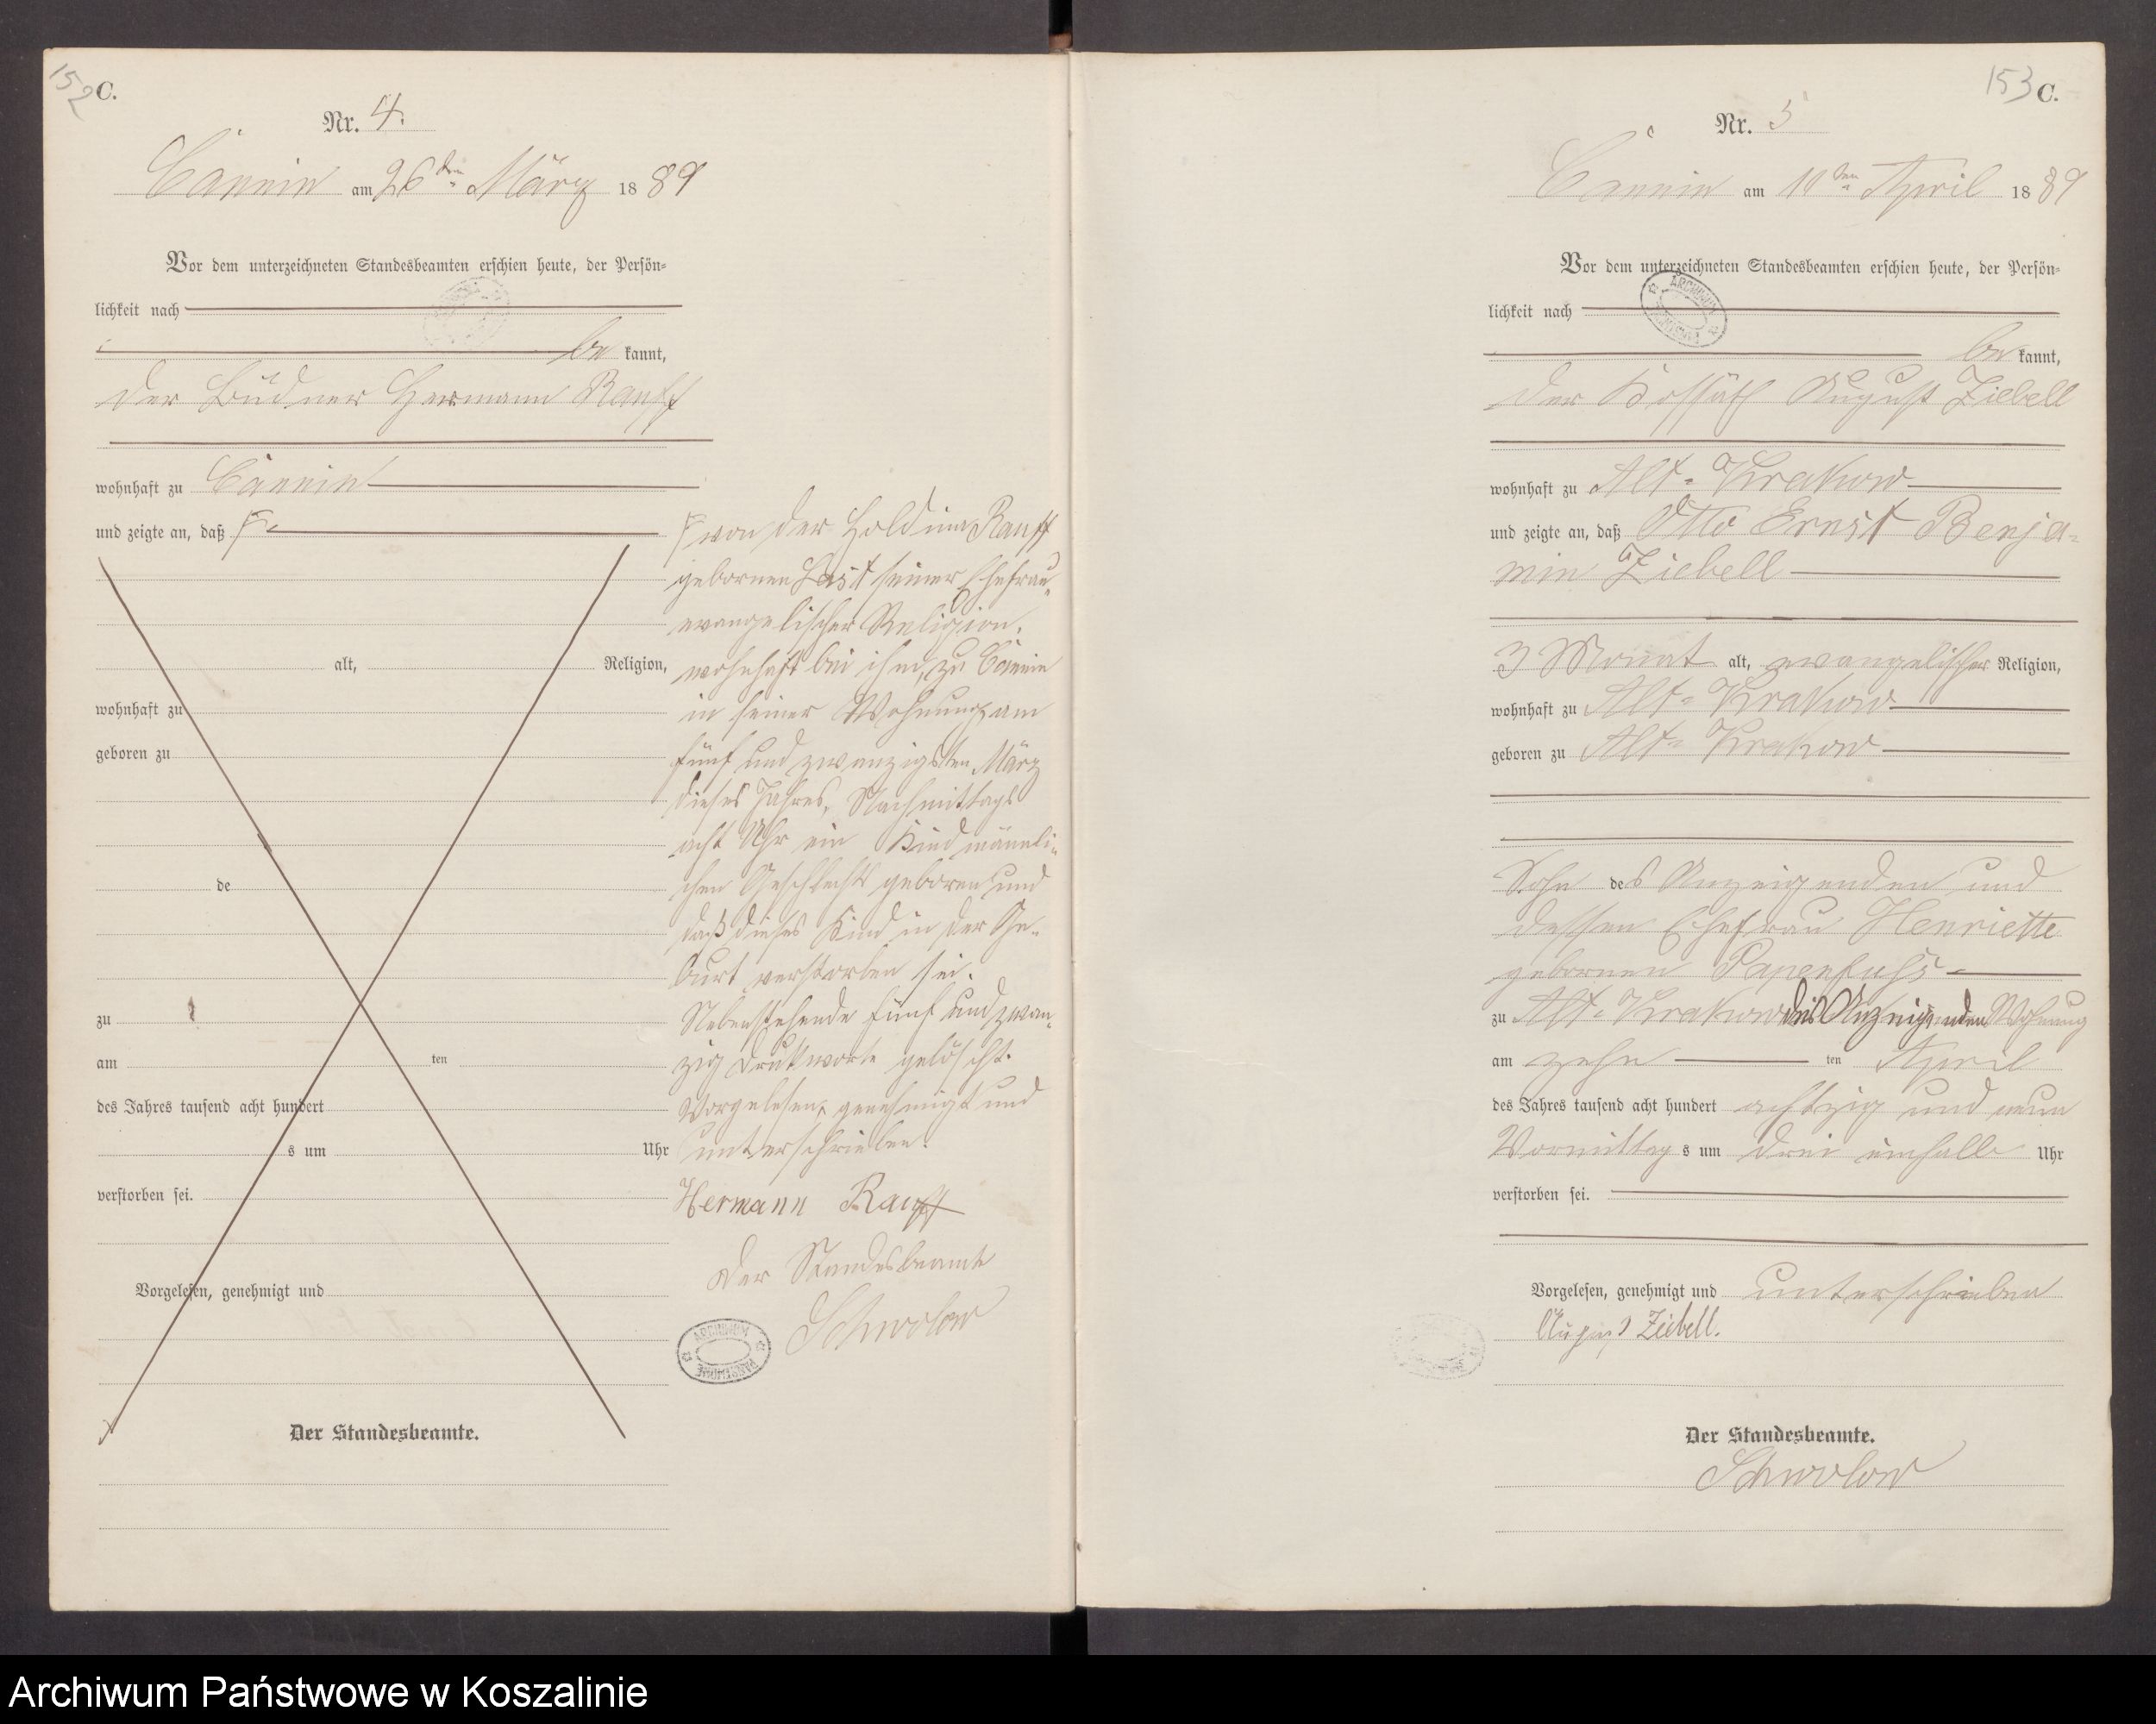 152
C.
Nr. 4.
Cännin am 26ten März 1889
Vor dem unterzeichneten Standesbeamten erschien heute, der Persön-
lichkeit nach
be kannt,
der Büdner Hermann Rauff
wohnhaft zu Cännin
und zeigte an, daß
alt, Religion,
wohnhaft zu
geboren zu
de
zu
am ten
des Jahres tausend acht hundert
s um Uhr
verstorben sei.
Vorgelesen, genehmigt und
Der Standesbeamte.
von der Rauff
gebornen Last seiner Ehefrau,
evangelischer Religion,
wohnhaft bei ihm, zu Cännin
in seiner Wohnung am
fünf und zwanzigsten März
dieses Jahres, Nachmittags
acht Uhr ein Kind männli-
chen Geschlechts geboren und
daß dieses Kind in der Ge-
burt verstorben sei.
Nebenstehende fünf und zwan-
zig Druckworte gelöscht.
Vorgelesen, genehmigt und
unterschrieben.
Hermann Rauff
Der Standesbeamte
Schwolow
ARCHIWUM
PAŃSTWOWE
153
C.
Nr. 5
Cännin am 11ten April 1889
Vor dem unterzeichneten Standesbeamten erschien heute, der Persön-
lichkeit nach
be kannt,
der Kossäth August Ziebell
wohnhaft zu Alt-Krakow
und zeigte an, daß Otto Ernst Benja-
min Ziebell
3 Monat alt, evangelischer Religion,
wohnhaft zu Alt-Krakow
geboren zu Alt-Krakow
Sohn des Anzeigenden und
dessen Ehefrau Henriette
gebornen Papenfuhs
zu Alt-Krakow des Anzeigenden Wohnung
am zehn ten April
des Jahres tausend acht hundert achtzig und neun
Vormittag s um drei einhalb Uhr
verstorben sei.
Vorgelesen, genehmigt und unterschrieben
August Ziebell.
Der Standesbeamte.
Schwolow
ARCHIWUM
Archiwum Państwowe w Koszalinie